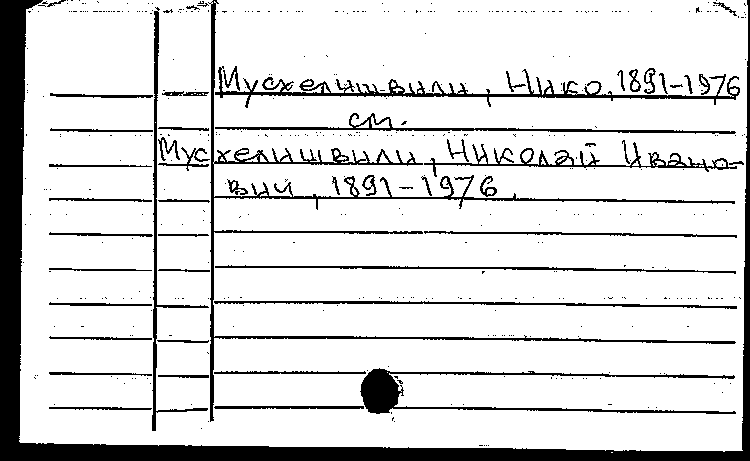 Мусхелишвили, Нико, 1891-1976
см.
Мусхелишвили, Николай Ивано-
вич, 1891-1976.